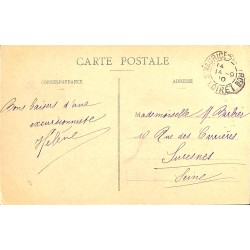 CARTE POSTALE
CORRESPONDANCE
ADRESSE
Bons baisers d'une
excursionniste
Hélène
Mademoiselle M. Barbier
19 Rue des Carrières
Suresnes
Seine
14
LOIRET